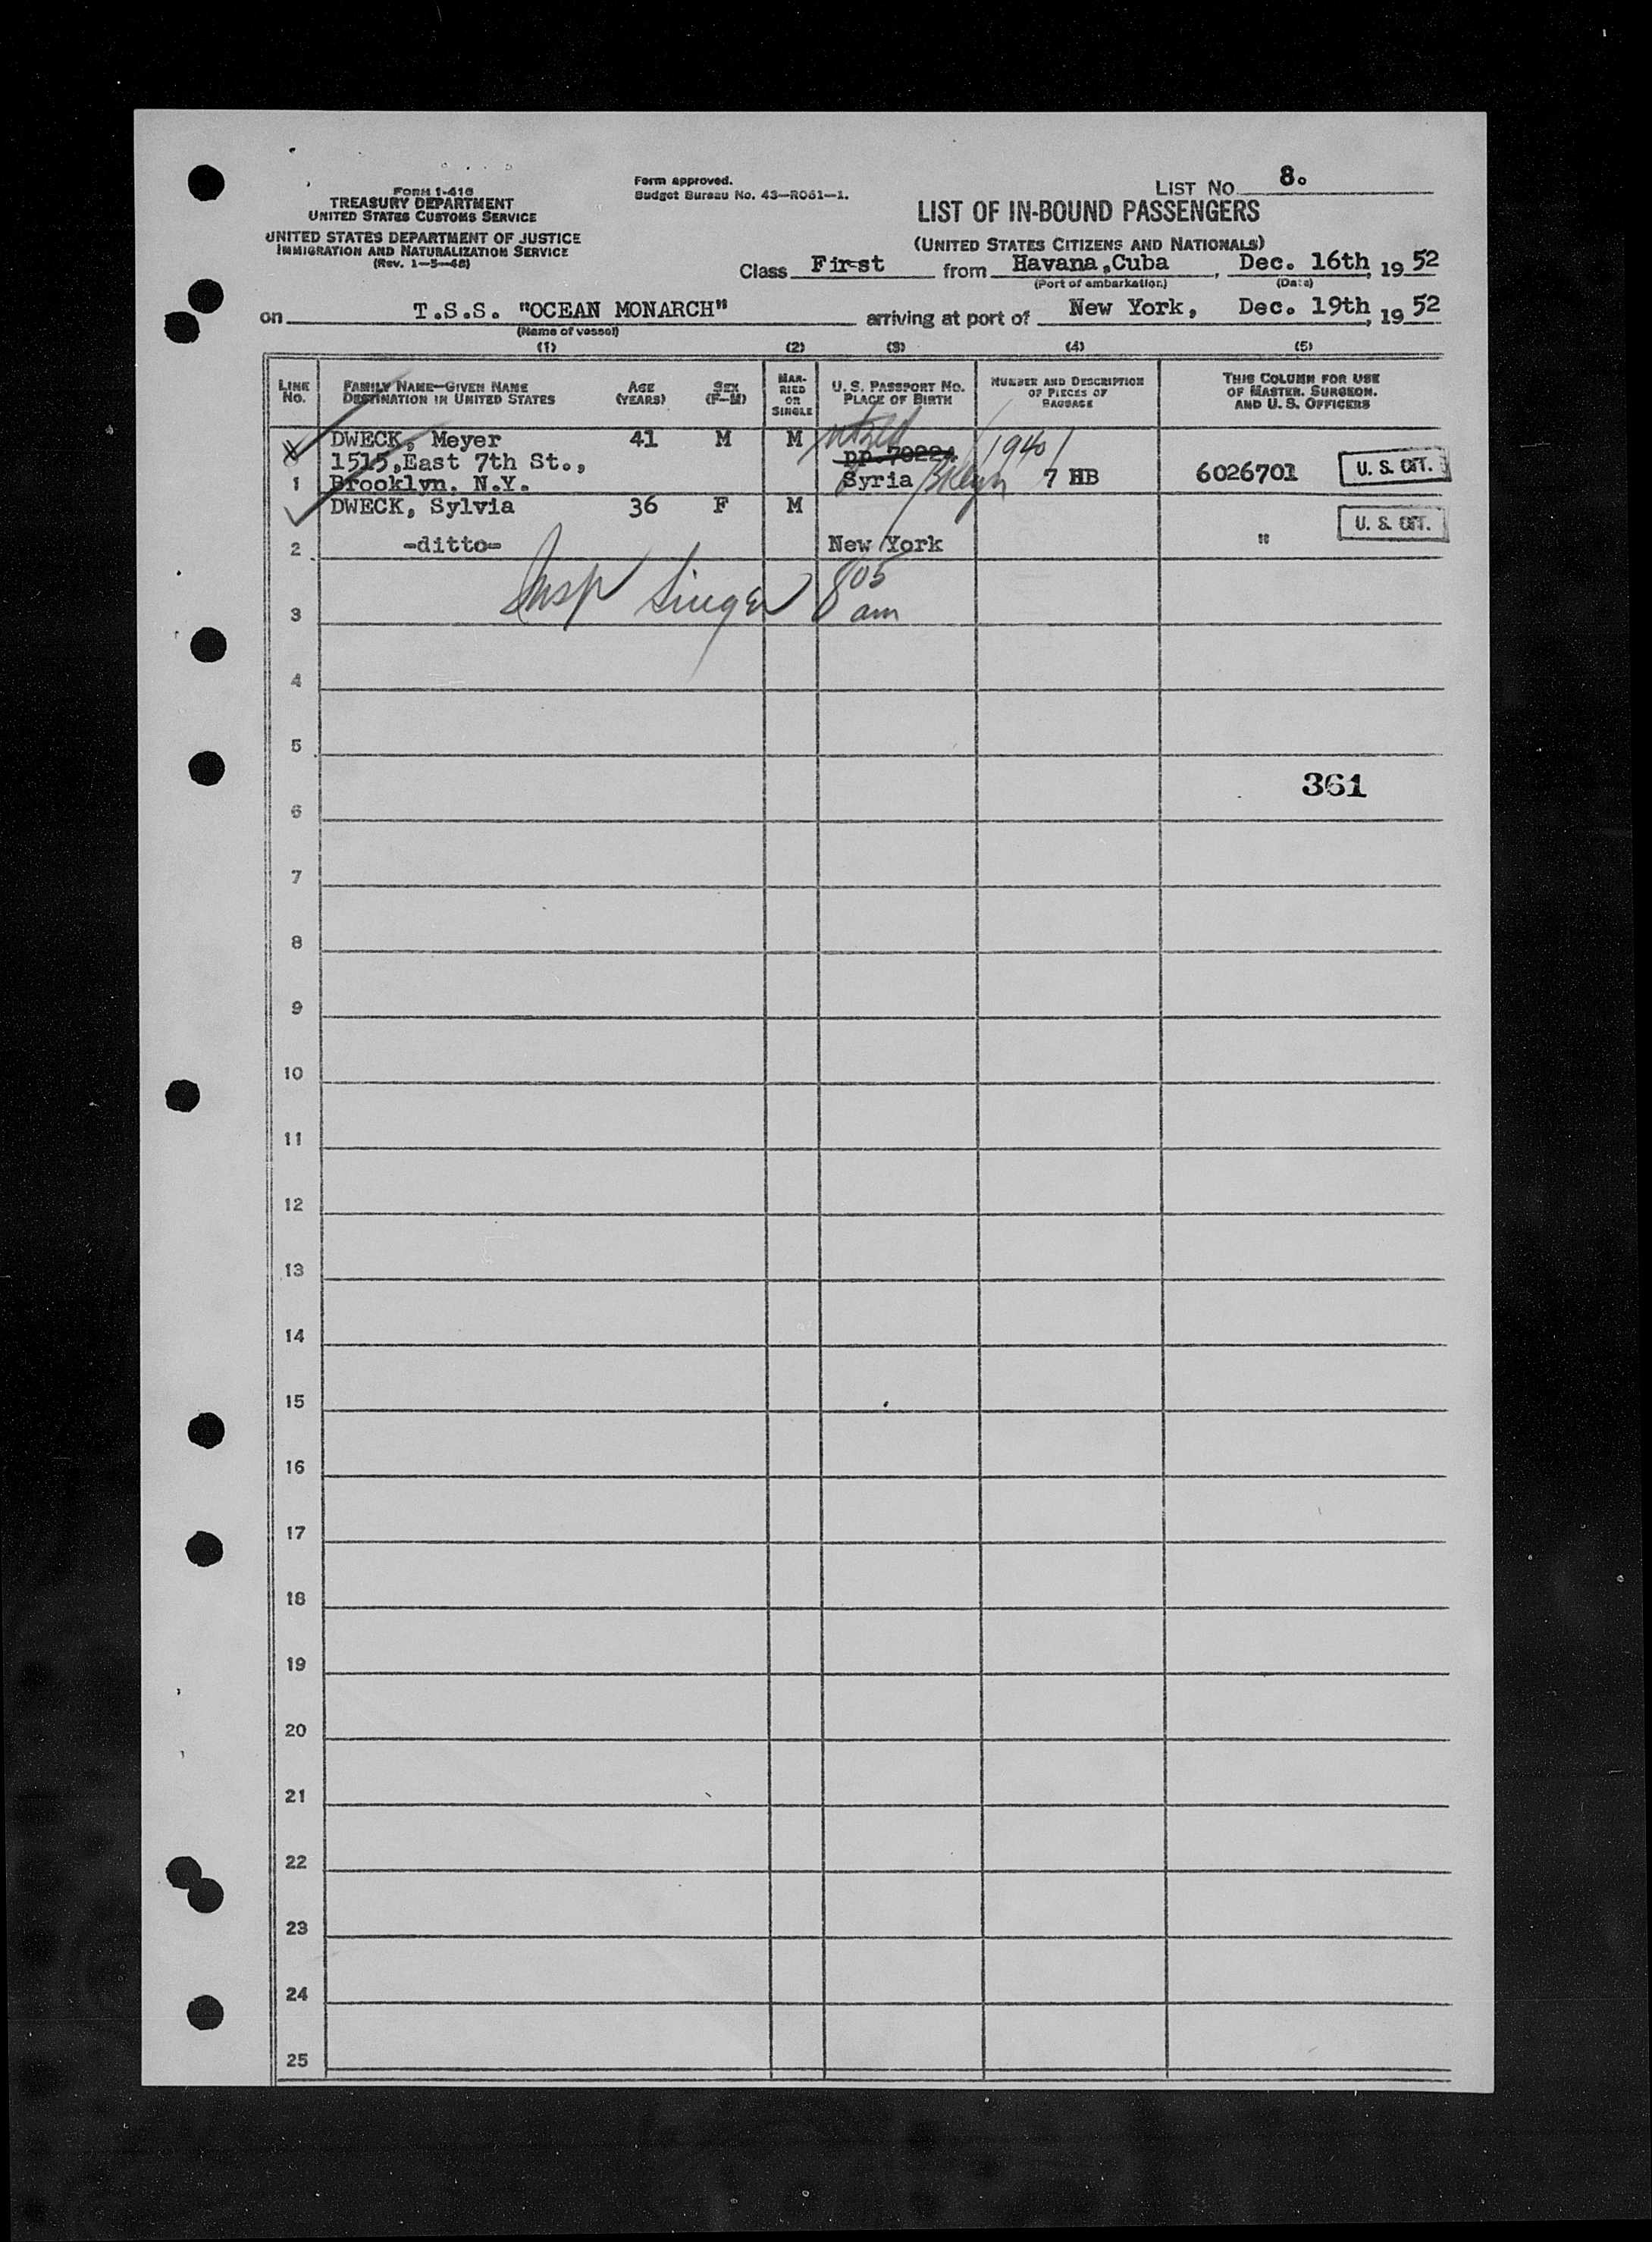 Form I-418
TREASURY DEPARTMENT
UNITED STATES CUSTOMS SERVICE
UNITED STATES DEPARTMENT OF JUSTICE
IMMIGRATION AND NATURALIZATION SERVICE
(Rev. 1-5-48)
Form approved.
Budget Bureau No. 43-R061-1.
LIST No 8.
LIST OF IN-BOUND PASSENGERS
(UNITED STATES CITIZENS AND NATIONALS)
Class First from Havana,Cuba, Dec. 16th, 19 52
(Port of embarkation) (Date)
on T.S.S. "OCEAN MONARCH" arriving at port of New York, Dec. 19th, 19 52
(Name of vessel)
(1) (2) (3) (4) (5)
LINE No. FAMILY NAME-GIVEN NAME DESTINATION IN UNITED STATES AGE (YEARS) SEX (F-M) MARRIED OR SINGLE U.S. PASSPORT NO. PLACE OF BIRTH NUMBER AND DESCRIPTION OF PIECES OF BAGGAGE THIS COLUMN FOR USE OF MASTER, SURGEON, AND U. S. OFFICERS
DWECK, Meyer 41 M M 1940
1515,East 7th St.,
1 Brooklyn. N.Y. Syria Bklyn 7 HB 6026701 U. S. CIT.
DWECK, Sylvia 36 F M U. S. CIT.
2 -ditto- New York "
Insp Singer 8 05 am
3
4
5
361
6
7
8
9
10
11
12
13
14
15
16
17
18
19
20
21
22
23
24
25